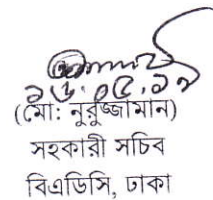 ১৬.০৫.১৭
(মো: নুরুজ্জামান)
সহকারী সচিব
বিএডিসি, ঢাকা